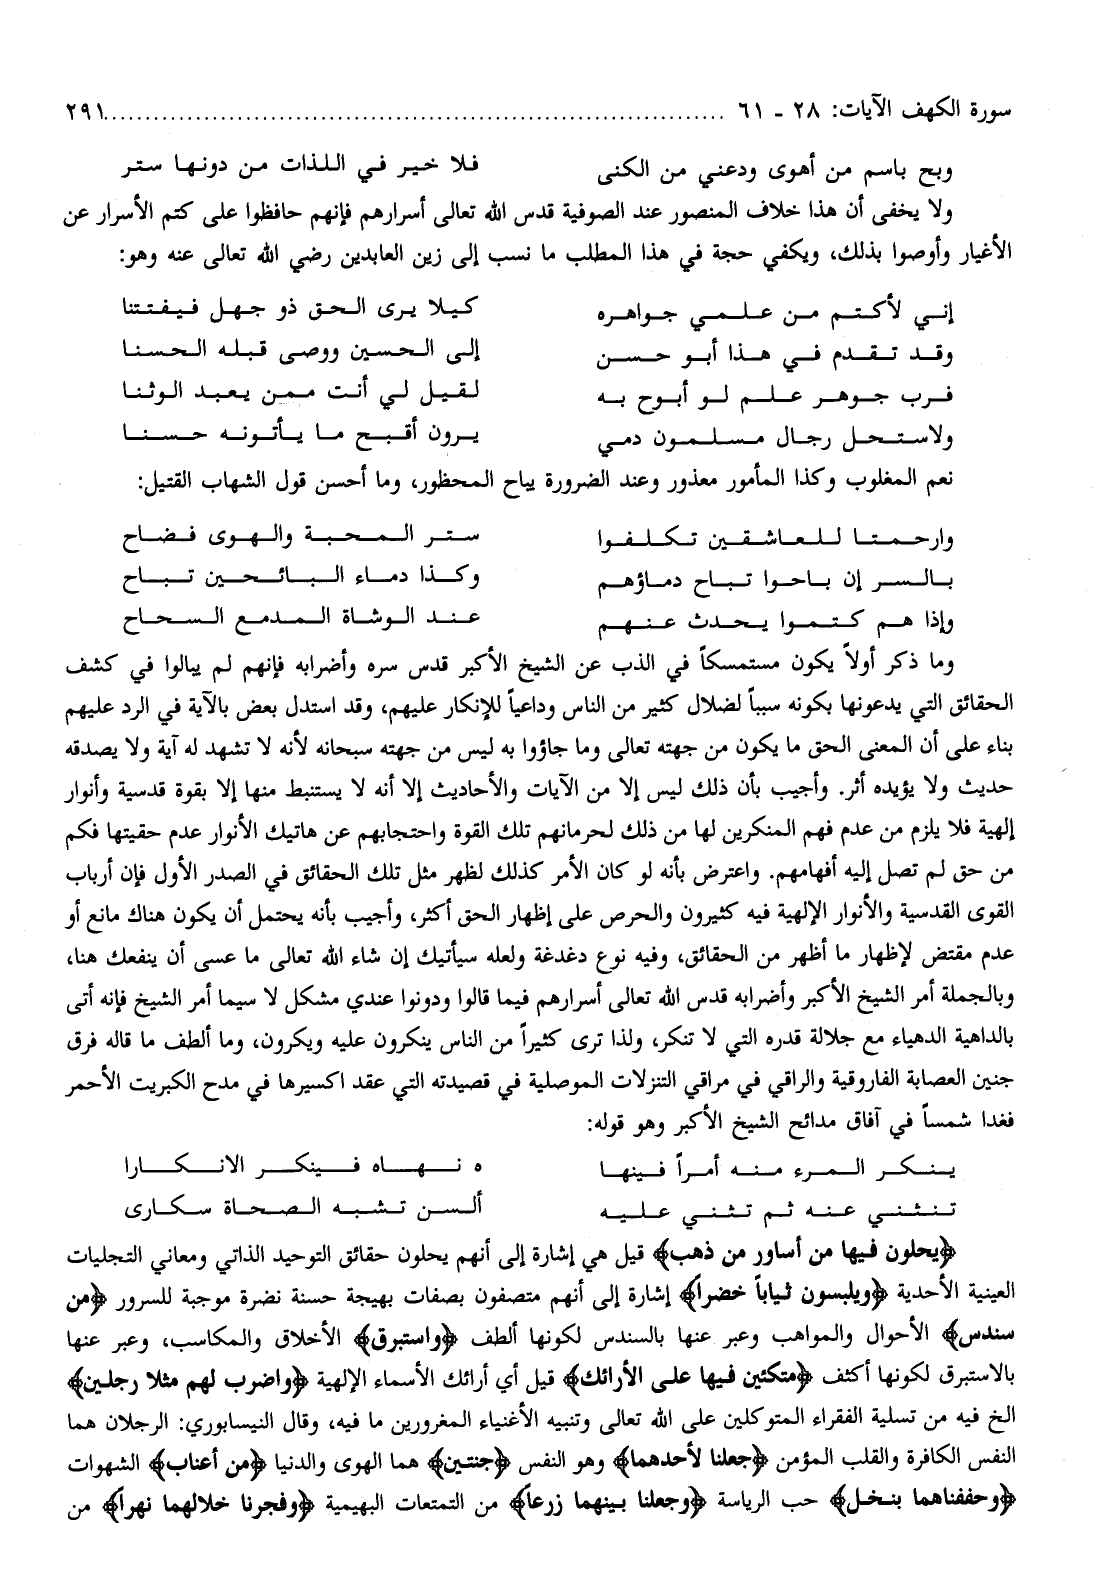 سورة الكهف الآيات: ٢٨ - ٦١ ........................................................................... ٢٩١
وبح باسم من أهوى ودعني من الكنى فلا خير في اللذات من دونها ستر
ولا يخفى أن هذا خلاف المنصور عند الصوفية قدس الله تعالى أسرارهم فإنهم حافظوا على كتم الأسرار عن
الأغيار وأوصوا بذلك، ويكفي حجة في هذا المطلب ما نسب إلى زين العابدين رضي الله تعالى عنه وهو:
إني لأكتم من علمي جواهره كيلا يرى الحق ذو جهل فيفتتنا
وقد تقدم في هذا أبو حسن إلى الحسين ووصى قبله الحسنا
فرب جوهر علم لو أبوح به لقيل لي أنت ممن يعبد الوثنا
ولاستحل رجال مسلمون دمي يرون أقبح ما يأتونه حسنا
نعم المغلوب وكذا المأمور معذور وعند الضرورة يباح المحظور، وما أحسن قول الشهاب القتيل:
وارحمتا للعاشقين تكلفوا ستر المحبة والهوى فضاح
بالسر إن باحوا تباح دماؤهم وكذا دماء البائحين تباح
وإذا هم كتموا يحدث عنهم عند الوشاة المدمع السحاح
وما ذكر أولاً يكون مستمسكاً في الذب عن الشيخ الأكبر قدس سره وأضرابه فإنهم لم يبالوا في كشف
الحقائق التي يدعونها بكونه سبباً لضلال كثير من الناس وداعياً للإنكار عليهم، وقد استدل بعض بالآية في الرد عليهم
بناء على أن المعنى الحق ما يكون من جهته تعالى وما جاؤوا به ليس من جهته سبحانه لأنه لا تشهد له آية ولا يصدقه
حديث ولا يؤيده أثر. وأجيب بأن ذلك ليس إلا من الآيات والأحاديث إلا أنه لا يستنبط منها إلا بقوة قدسية وأنوار
إلهية فلا يلزم من عدم فهم المنكرين لها من ذلك لحرمانهم تلك القوة واحتجابهم عن هاتيك الأنوار عدم حقيتها فكم
من حق لم تصل إليه أفهامهم. واعترض بأنه لو كان الأمر كذلك لظهر مثل تلك الحقائق في الصدر الأول فإن أرباب
القوى القدسية والأنوار الإلهية فيه كثيرون والحرص على إظهار الحق أكثر، وأجيب بأنه يحتمل أن يكون هناك مانع أو
عدم مقتض لإظهار ما أظهر من الحقائق، وفيه نوع دغدغة ولعله سيأتيك إن شاء الله تعالى ما عسى أن ينفعك هنا،
وبالجملة أمر الشيخ الأكبر وأضرابه قدس الله تعالى أسرارهم فيما قالوا ودونوا عندي مشكل لا سيما أمر الشيخ فإنه أتى
بالداهية الدهياء مع جلالة قدره التي لا تنكر، ولذا ترى كثيراً من الناس ينكرون عليه ويكرون، وما ألطف ما قاله فرق
جنين العصابة الفاروقية والراقي في مراقي التنزلات الموصلية في قصيدته التي عقد اكسيرها في مدح الكبريت الأحمر
فغدا شمساً في آفاق مدائح الشيخ الأكبر وهو قوله:
ينكر المرء منه أمراً فينها ه نهاه فينكر الانكارا
تنثني عنه ثم تثني عليه ألسن تشبه الصحاة سكارى
﴿يحلون فيها من أساور من ذهب﴾ قيل هي إشارة إلى أنهم يحلون حقائق التوحيد الذاتي ومعاني التجليات
العينية الأحدية ﴿ويلبسون ثياباً خضراً﴾ إشارة إلى أنهم متصفون بصفات بهيجة حسنة نضرة موجبة للسرور ﴿من
سندس﴾ الأحوال والمواهب وعبر عنها بالسندس لكونها ألطف ﴿واستبرق﴾ الأخلاق والمكاسب، وعبر عنها
بالاستبرق لكونها أكثف ﴿متكئين فيها على الأرائك﴾ قيل أي أرائك الأسماء الإلهية ﴿واضرب لهم مثلا رجلين﴾
الخ فيه من تسلية الفقراء المتوكلين على الله تعالى وتنبيه الأغنياء المغرورين ما فيه، وقال النيسابوري: الرجلان هما
النفس الكافرة والقلب المؤمن ﴿جعلنا لأحدهما﴾ وهو النفس ﴿جنتين﴾ هما الهوى والدنيا ﴿من أعناب﴾ الشهوات
﴿وحففناهما بنخل﴾ حب الرياسة ﴿وجعلنا بينهما زرعاً﴾ من التمتعات البهيمية ﴿وفجرنا خلالهما نهراً﴾ من